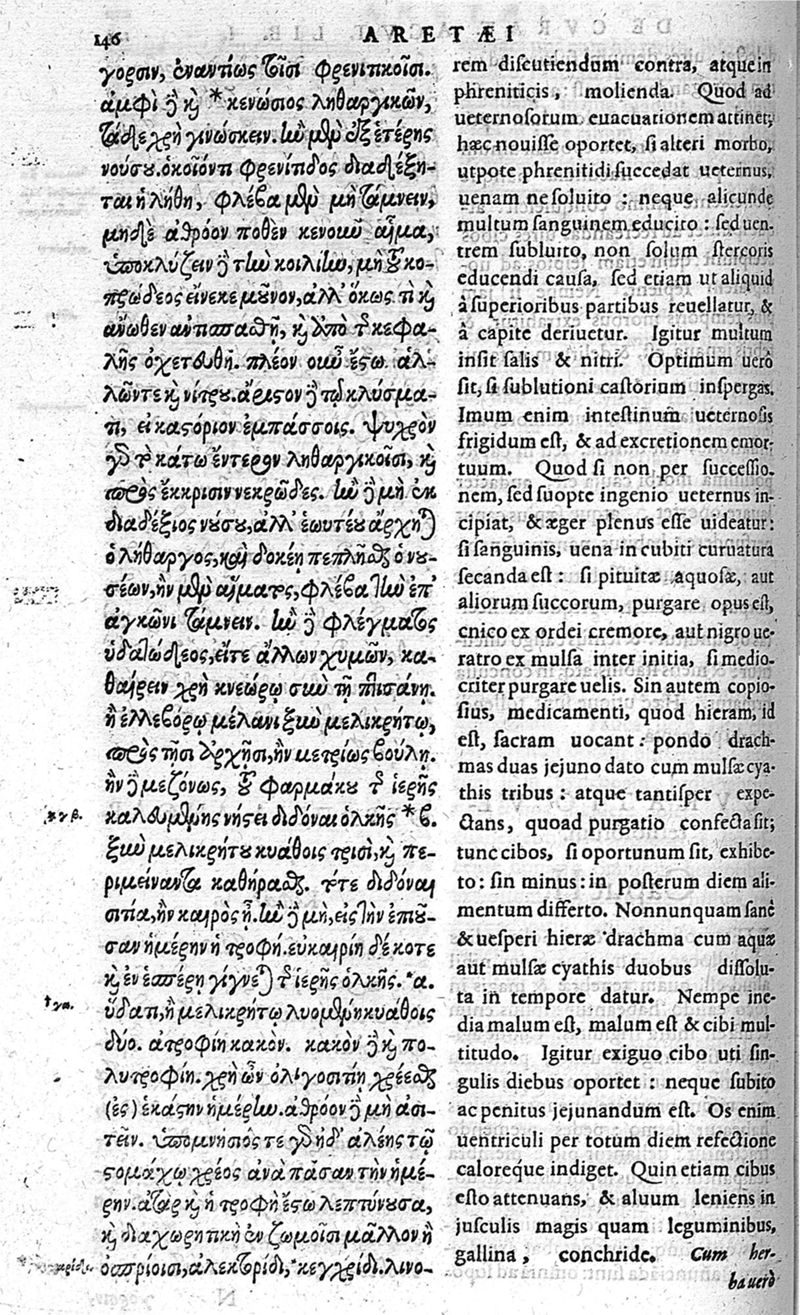 146 ARETÆI
γορσιν, ἐναντίως τοῖσι φρενιτικοῖσι.
ἀμφὶ δὲ καὶ *κενώσιος ληθαργικῶν,
τάδε χρὴ γινώσκειν. ἢν μὲν ἐξ ἑτέρης
νούσου. ὁκοῖόν τι φρενίτιδος διαδέξη-
ται ἡ λήθη, φλέβα μὲν μὴ τάμνειν,
μηδὲ ἀθρόον ποθὲν κενοῦν αἷμα,
ὑποκλύζειν δὲ τὴν κοιλίην, μὴ τοῦ κο-
πρώδεος εἵνεκε μοῦνον, ἀλλ' ὅκως τι καὶ
ἄνωθεν ἀντισπασθῇ, καὶ ἀπὸ τῆς κεφα-
λῆς ὀχετευθῇ. πλέον οὖν ἔστω ἁλ-
λῶν τε καὶ νίτρου. ἄριστον δὲ τῷ κλύσμα-
τι, εἰ καστόριον ἐμπάσσοις. ψυχρὸν
γὰρ τὸ κάτω ἔντερον ληθαργικοῖσι, καὶ
πρὸς ἔκκρισιν νεκρῶδες. ἢν δὲ μὴ ἐκ
διαδέξιος νούσου, ἀλλ' ἑωυτέου ἄρχηται
ὁ λήθαργος, καὶ δοκέῃ πεπλῆσθαι ὁ νο-
σέων, ἢν μὲν αἵματος, φλέβα τὴν ἐπ'
ἀγκῶνι τάμνειν. ἢν δὲ φλέγματος
ὑδατώδεος, εἴτε ἄλλων χυμῶν, κα-
θαίρειν χρὴ κνεώρῳ σὺν τῇ πτισάνῃ.
ἢ ἑλλεβόρῳ μέλανι ξὺν μελικρήτῳ,
πρὸς τῇσι ἀρχῇσι, ἢν μετρίως βούλῃ.
ἢν δὲ μεζόνως, τοῦ φαρμάκου τῆς ἱερῆς
καλουμένης νήστει διδόναι ὁλκῆς *β.
ξὺν μελικρήτου κυάθοις τρισὶ, καὶ πε-
ριμείναντα καθήρασθαι. τότε διδόναι
σιτία, ἢν καιρὸς ᾖ. ἢν δὲ μὴ, εἰς τὴν ἐπιοῦ-
σαν ἡμέρην ἡ τροφή. εὐκαιρίη δέ κοτε
καὶ ἐν ἑσπέρῃ γίγνεται τῆς ἱερῆς ὁλκῆς. *α.
ὕδατι, ἢ μελικρήτῳ λυομένη κυάθοις
δύο. ἀτροφίη κακόν. κακὸν δὲ καὶ πο-
λυτροφίη. χρὴ ὦν ὀλιγοσιτίῃ χρέεσθαι
(ἐς) ἑκάστην ἡμέρην. ἀθρόον δὲ μὴ ἀσι-
τεῖν. ὑπομνήσιός τε γὰρ ἠδ' ἀλέης τῷ
στομάχῳ χρέος ἀνὰ πᾶσαν τὴν ἡμέ-
ρην. ἀτὰρ καὶ ἡ τροφὴ ἔστω λεπτύνουσα,
καὶ διαχωρητικὴ ἐν ζωμοῖσι μᾶλλον ἢ
ὀσπρίοισι, ἀλεκτορίδι, *κεγχρίδι. λινο-
rem discutiendum contra, atque in
phreniticis, molienda. Quod ad
ueternosorum euacuationem attinet,
hæc nouisse oportet, si alteri morbo,
utpote phrenitidi succedat ueternus,
uenam ne soluito: neque alicunde
multum sanguinem educito: sed uen-
trem subluito, non solum stercoris
educendi causa, sed etiam ut aliquid
à superioribus partibus reuellatur, &
à capite deriuetur. Igitur multum
insit salis & nitri. Optimum uerò
sit, si sublutioni castorium inspergas.
Imum enim intestinum ueternosis
frigidum est, & ad excretionem emor-
tuum. Quod si non per successio-
nem, sed suopte ingenio ueternus in-
cipiat, & æger plenus esse uideatur:
si sanguinis, uena in cubiti curuatura
secanda est: si pituitæ aquosæ, aut
aliorum succorum, purgare opus est,
cnico ex ordei cremore, aut nigro ue-
ratro ex mulsa inter initia, si medio-
criter purgare uelis. Sin autem copio-
sius, medicamenti, quod hieram, id
est, sacram uocant: pondo drach-
mas duas jejuno dato cum mulsæ cya-
this tribus: atque tantisper expe-
ctans, quoad purgatio confecta sit;
tunc cibos, si oportunum sit, exhibe-
to: sin minus: in posterum diem ali-
mentum differto. Nonnunquam sanè
& uesperi hieræ drachma cum aquæ
aut mulsæ cyathis duobus dissolu-
ta in tempore datur. Nempe ine-
dia malum est, malum est & cibi mul-
titudo. Igitur exiguo cibo uti sin-
gulis diebus oportet: neque subito
ac penitus jejunandum est. Os enim
uentriculi per totum diem refectione
caloreque indiget. Quin etiam cibus
esto attenuans, & aluum leniens in
jusculis magis quam leguminibus,
gallina, conchride. Cum her-
bauerò